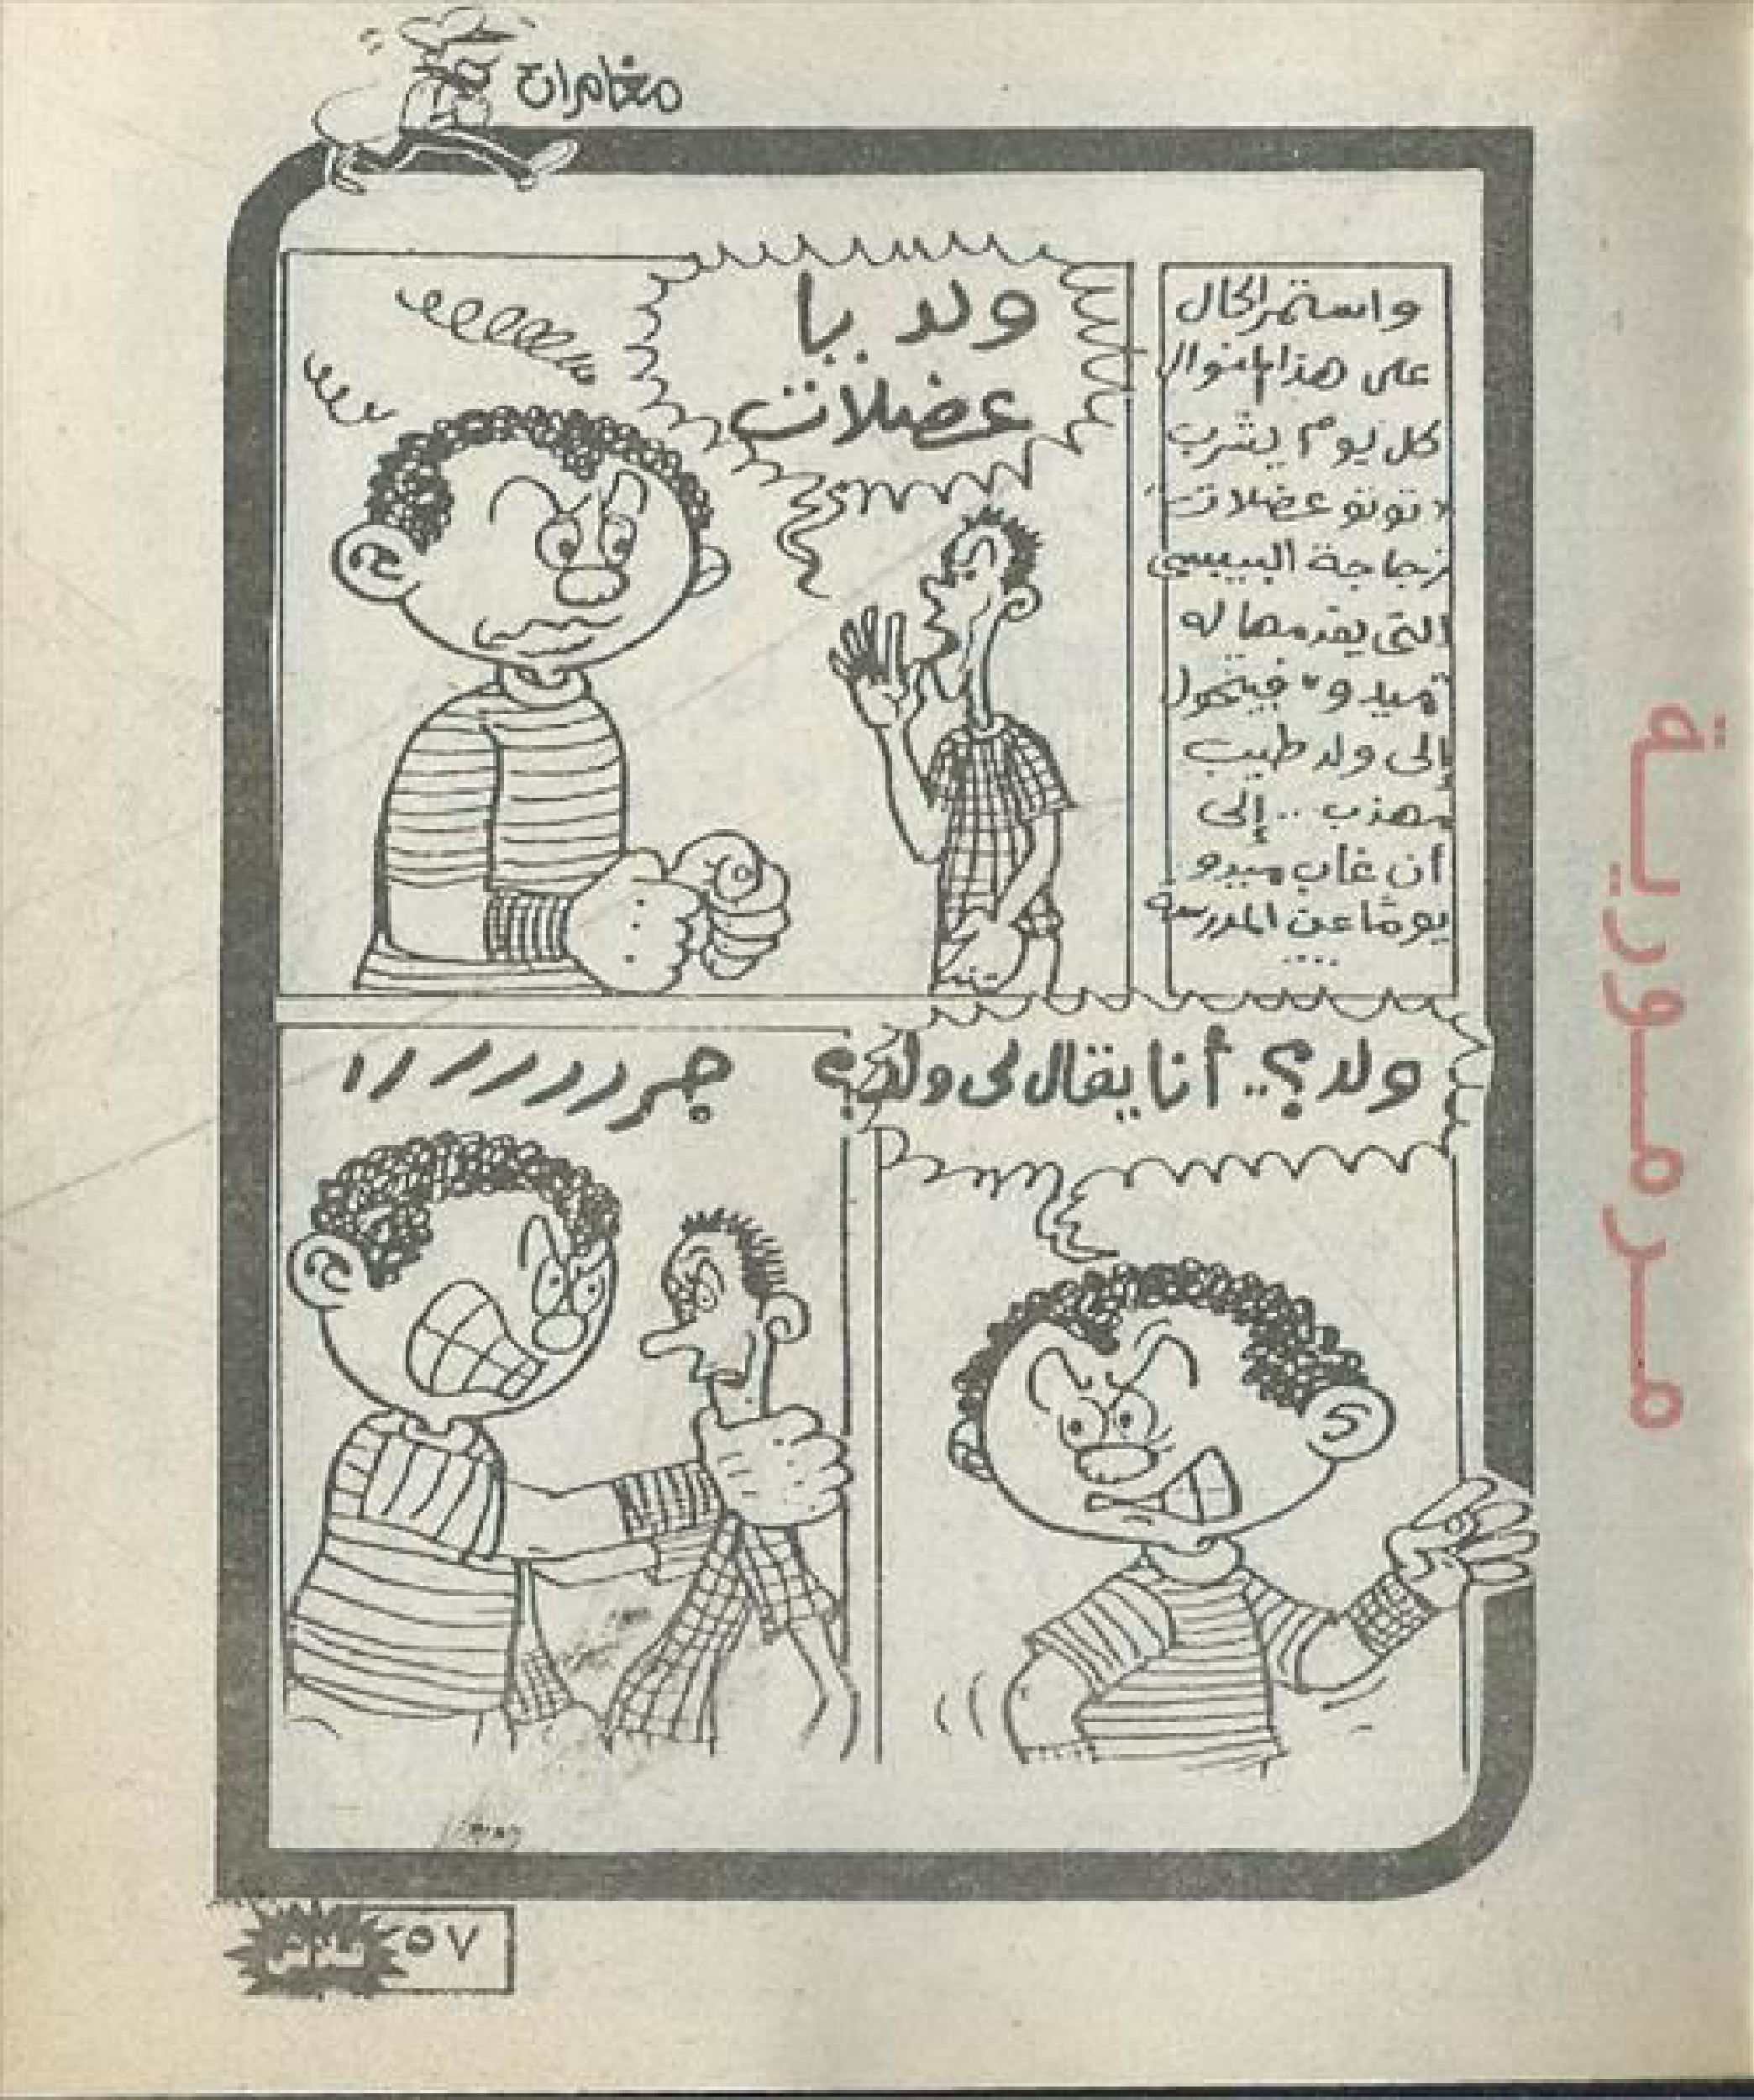 مغامرات
واستمر الحال
على هذا المنوال
كل يوم يشرب
"توتو عضلات"
زجاجة البيبسي
التى يقدمها له
"ميدو" فيتحول
إلى ولد طيب
مهذب .. إلى
أن غاب ميدو
يومًا عن المدرسة
....
ولد يا
عضلات
ولد؟.. أنا يقال لى ولد؟
جررررررررر
٥٧
مرمورية